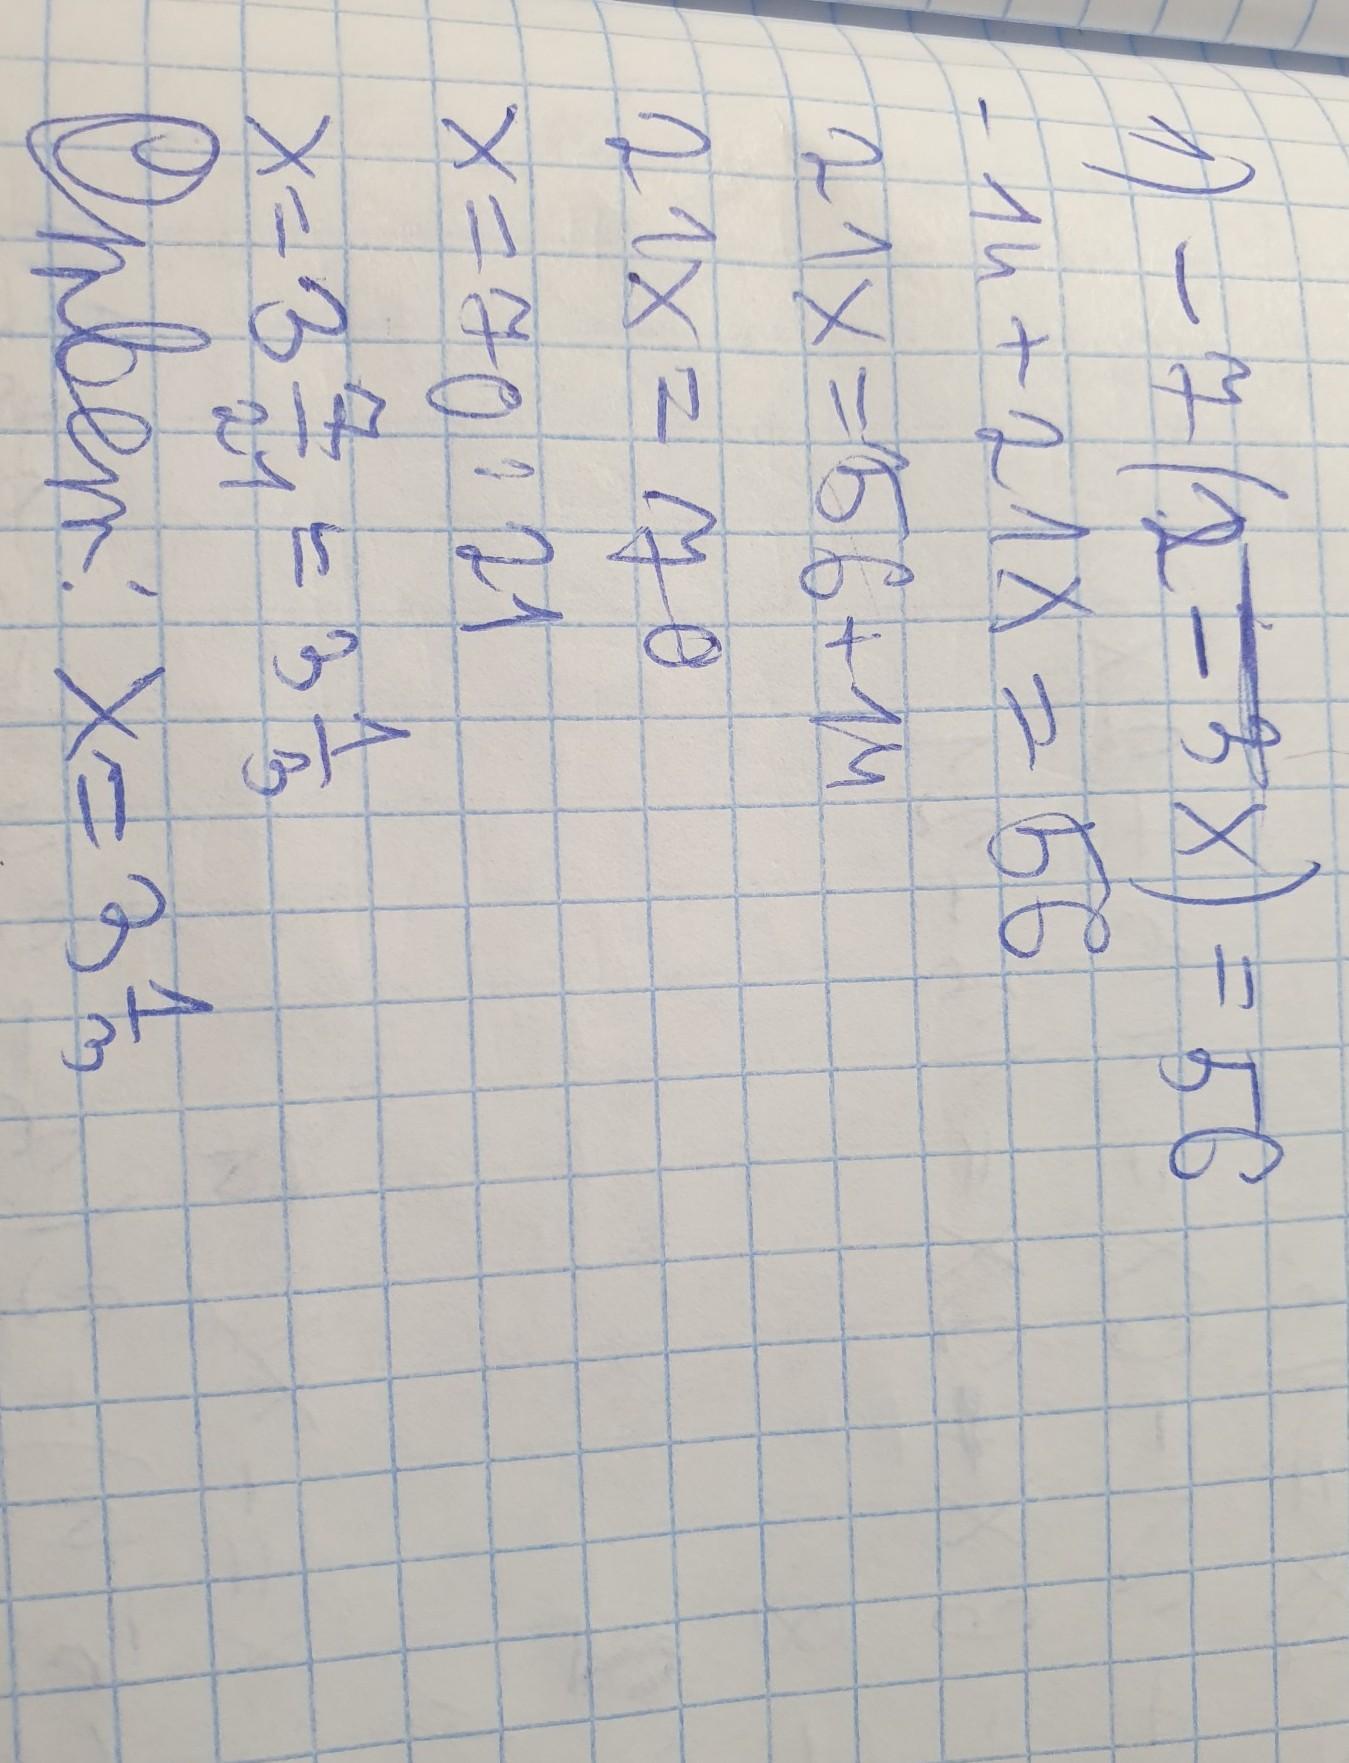 1) -7(2-3x) = 56
-14+21x = 56
21x = 56+14
21x = 70
x = 70 : 21
x = 3 7/21 = 3 1/3
Ответ: x = 3 1/3